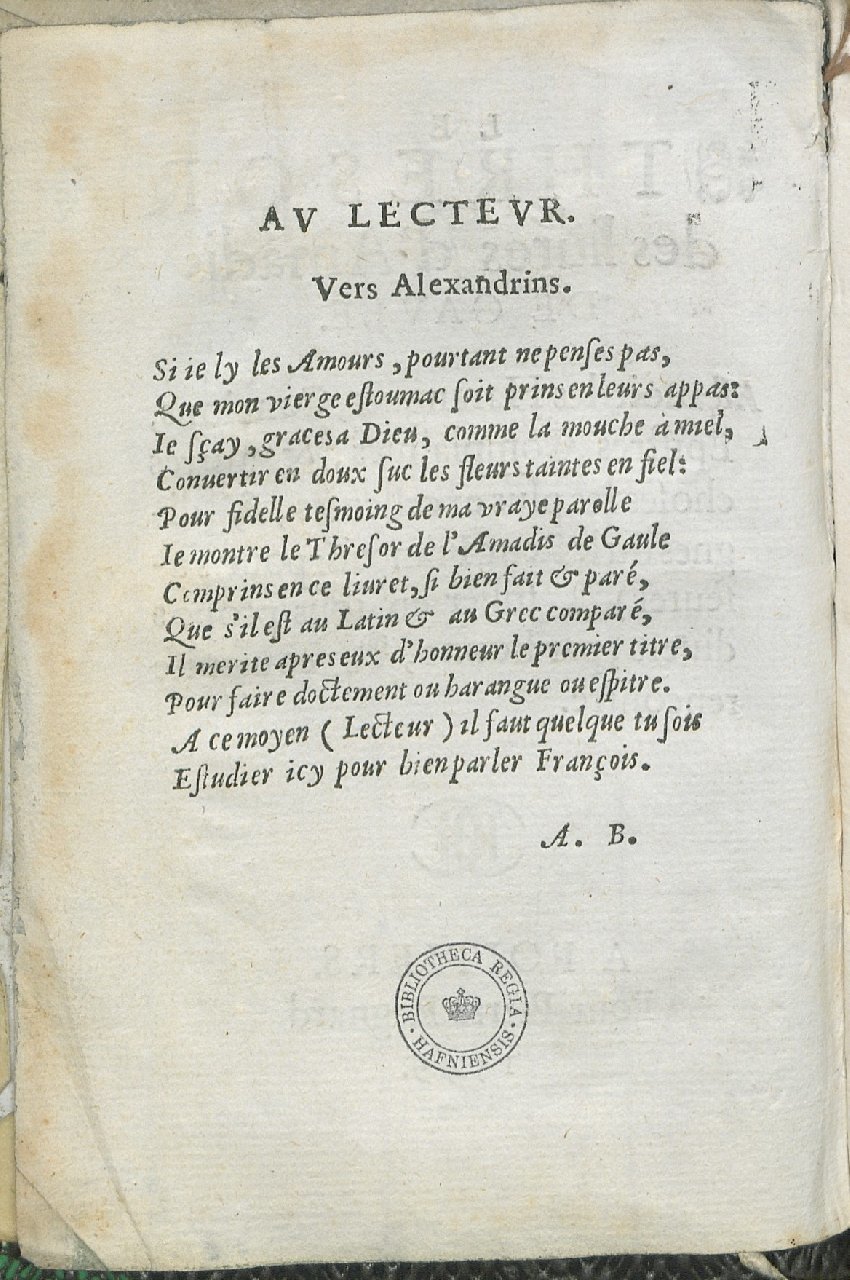 AV LECTEVR.
Vers Alexandrins.
Si ie ly les Amours, pourtant ne penſes pas,
Que mon vierge eſtoumac ſoit prins en leurs appas:
Ie ſçay, graces a Dieu, comme la mouche à miel,
Conuertir en doux ſuc les fleurs taintes en fiel:
Pour fidelle teſmoing de ma vraye parolle
Ie montre le Threſor de l'Amadis de Gaule
Comprins en ce liuret, ſi bien fait & paré,
Que s'il eſt au Latin & au Grec comparé,
Il merite apres eux d'honneur le premier titre,
Pour faire doctement ou harangue ou eſpitre.
A ce moyen (Lecteur) il faut quelque tu ſois
Eſtudier icy pour bien parler François.
A. B.
BIBLIOTHECA REGIA
HAFNIENSIS